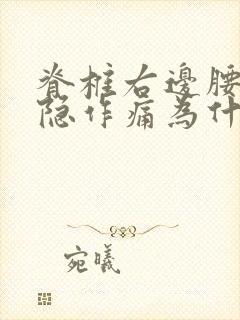 脊椎右邊腰
隐作痛為什
宛曦